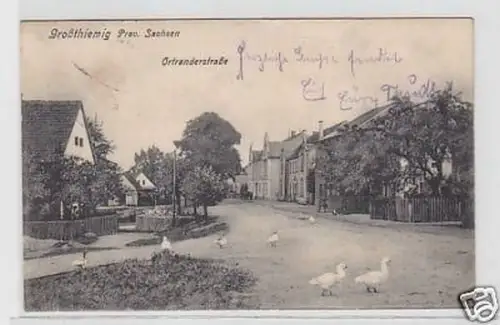 Großthiemig Prov. Sachsen
Ortranderstraße
Herzliche Grüße sendet